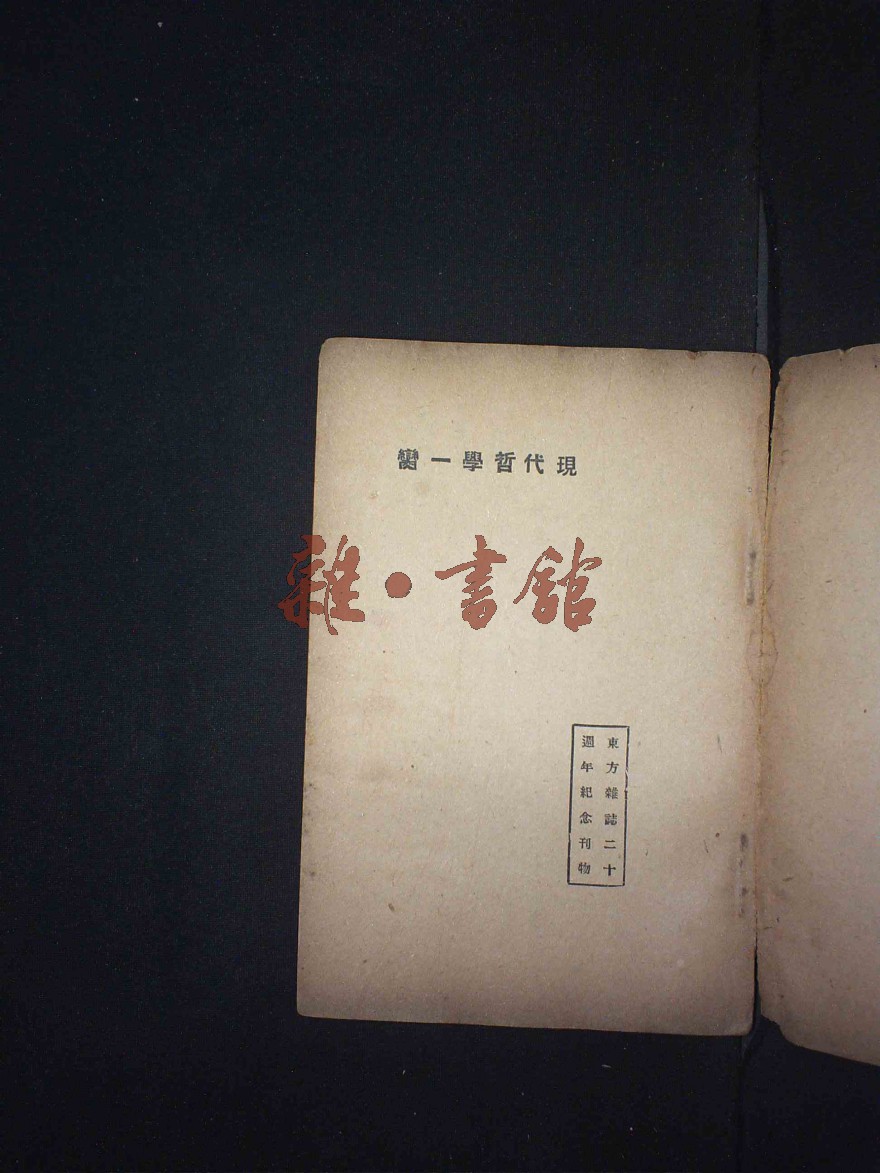 現代哲學一臠
雜·書館
東方雜誌二十
週年紀念刊物